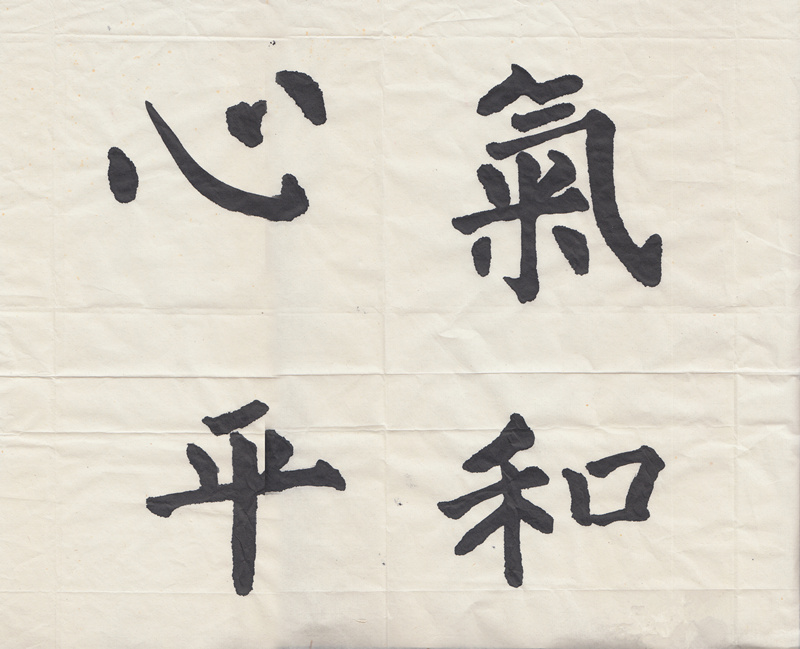 氣和
心平